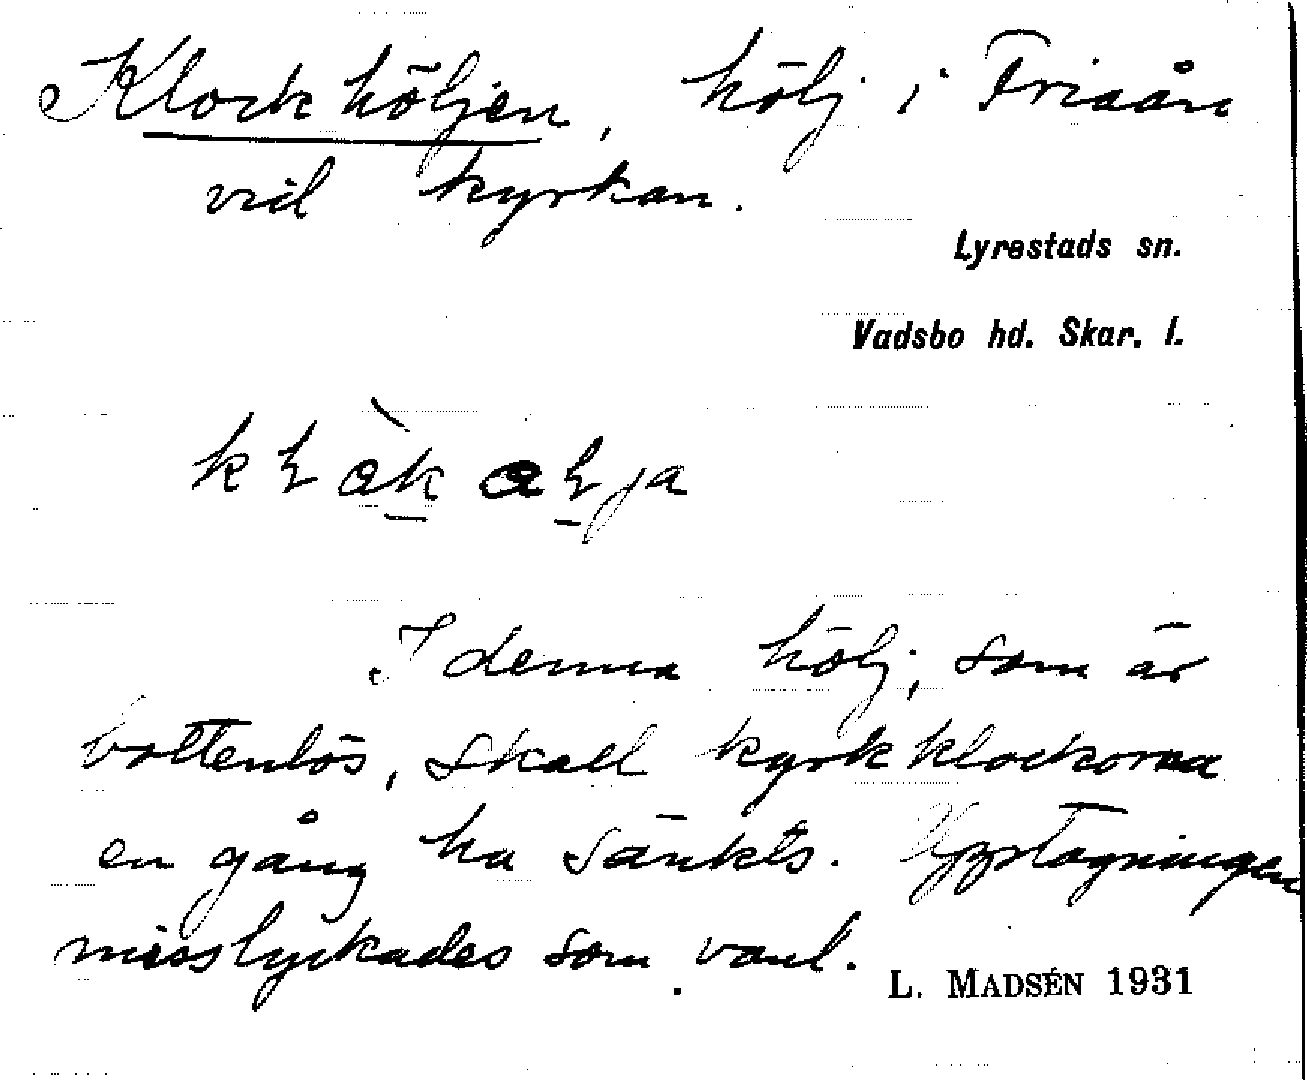 Klockhöljen, hölj i Friaån
vid kyrkan.
Lyrestads sn.
Vadsbo hd. Skar. l.
I denna hölj, som är
bottenlös, skall kyrkklockorna
en gång ha sänkts. Upptagningen
misslyckades som vanl.
L. MADSÉN 1931